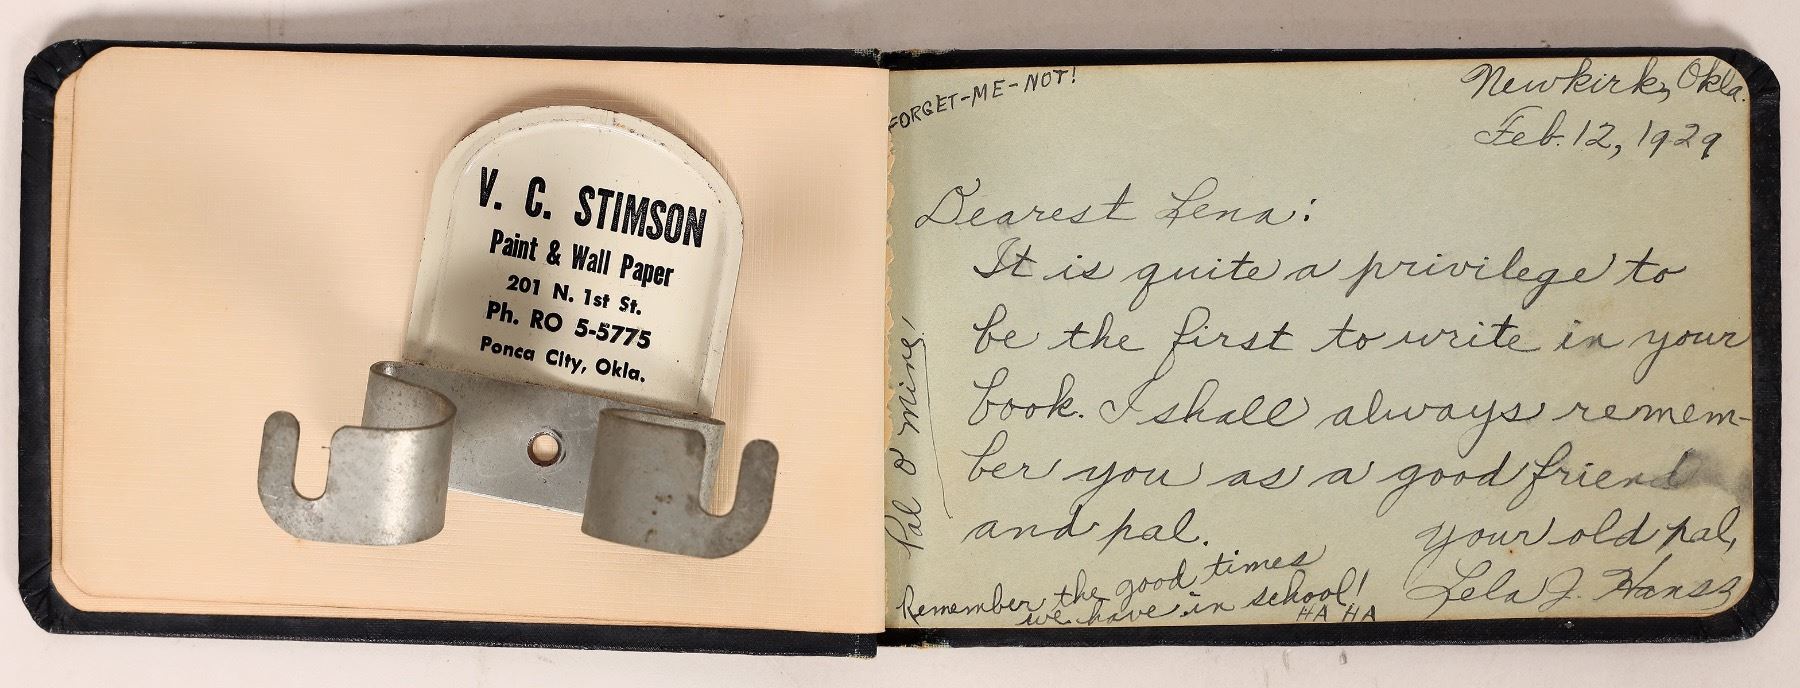 V. C. STIMSON
Paint & Wall Paper
201 N. 1st St.
Ph. RO 5-5775
Ponca City, Okla.
FORGET-ME-NOT!
Newkirk, Okla.
Feb. 12, 1929
Dearest Lena:
It is quite a privilege to
be the first to write in your
book. I shall always remem-
ber you as a good friend
and pal.
your old pal,
Lela J.
Pal O' Mine!
Remember the good times
we have in school!
HA HA